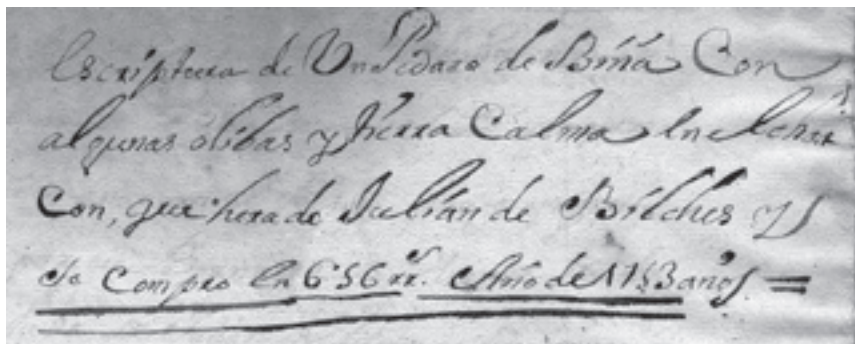 Escriptura de Un Pedaso de Biña Con
algunas olibas y tierra Calma en el
Con, que hera de Julián de Bilches y
se Compro en 656 rr.^s Año de 1753 años =